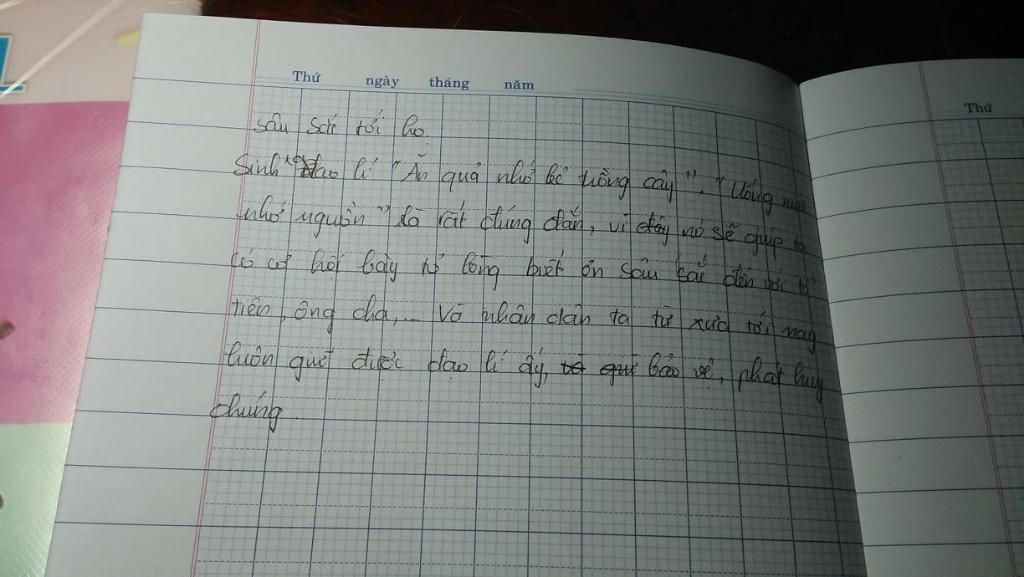 Thứ ngày tháng năm
Thứ
sâu sắc tới họ.
Sinh đạo lí "Ăn quả nhớ kẻ trồng cây", "Uống nước
nhớ nguồn" là rất đúng đắn, vì đây nó sẽ giúp ta
có cơ hội bày tỏ lòng biết ơn sâu sắc đến với tổ
tiên, ông cha,... Và nhân dân ta từ xưa tới nay
luôn được đạo lí ấy, bảo vệ, phát huy
chúng.